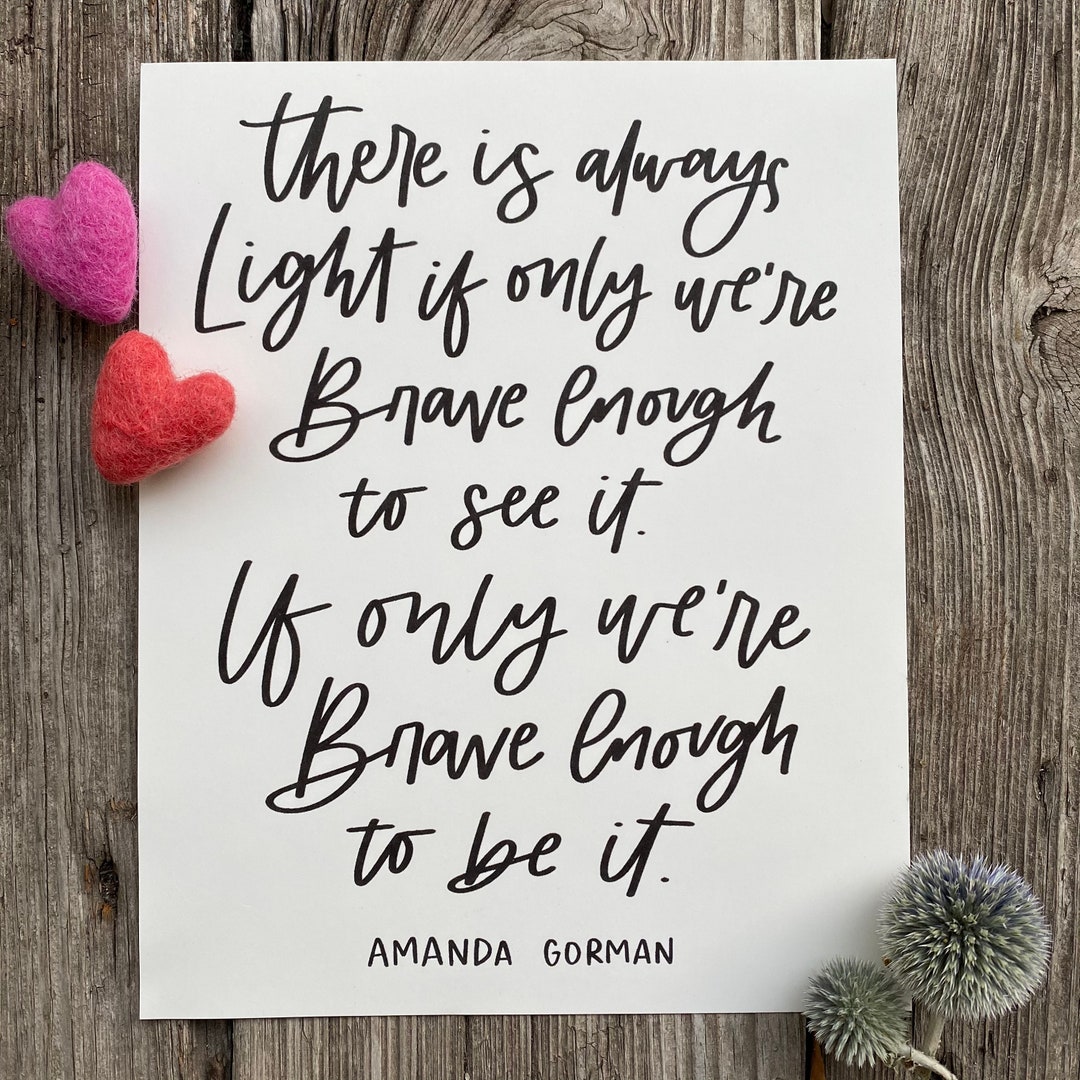 there is always
Light if only we're
Brave enough
to see it.
If only we're
Brave enough
to be it.
AMANDA GORMAN